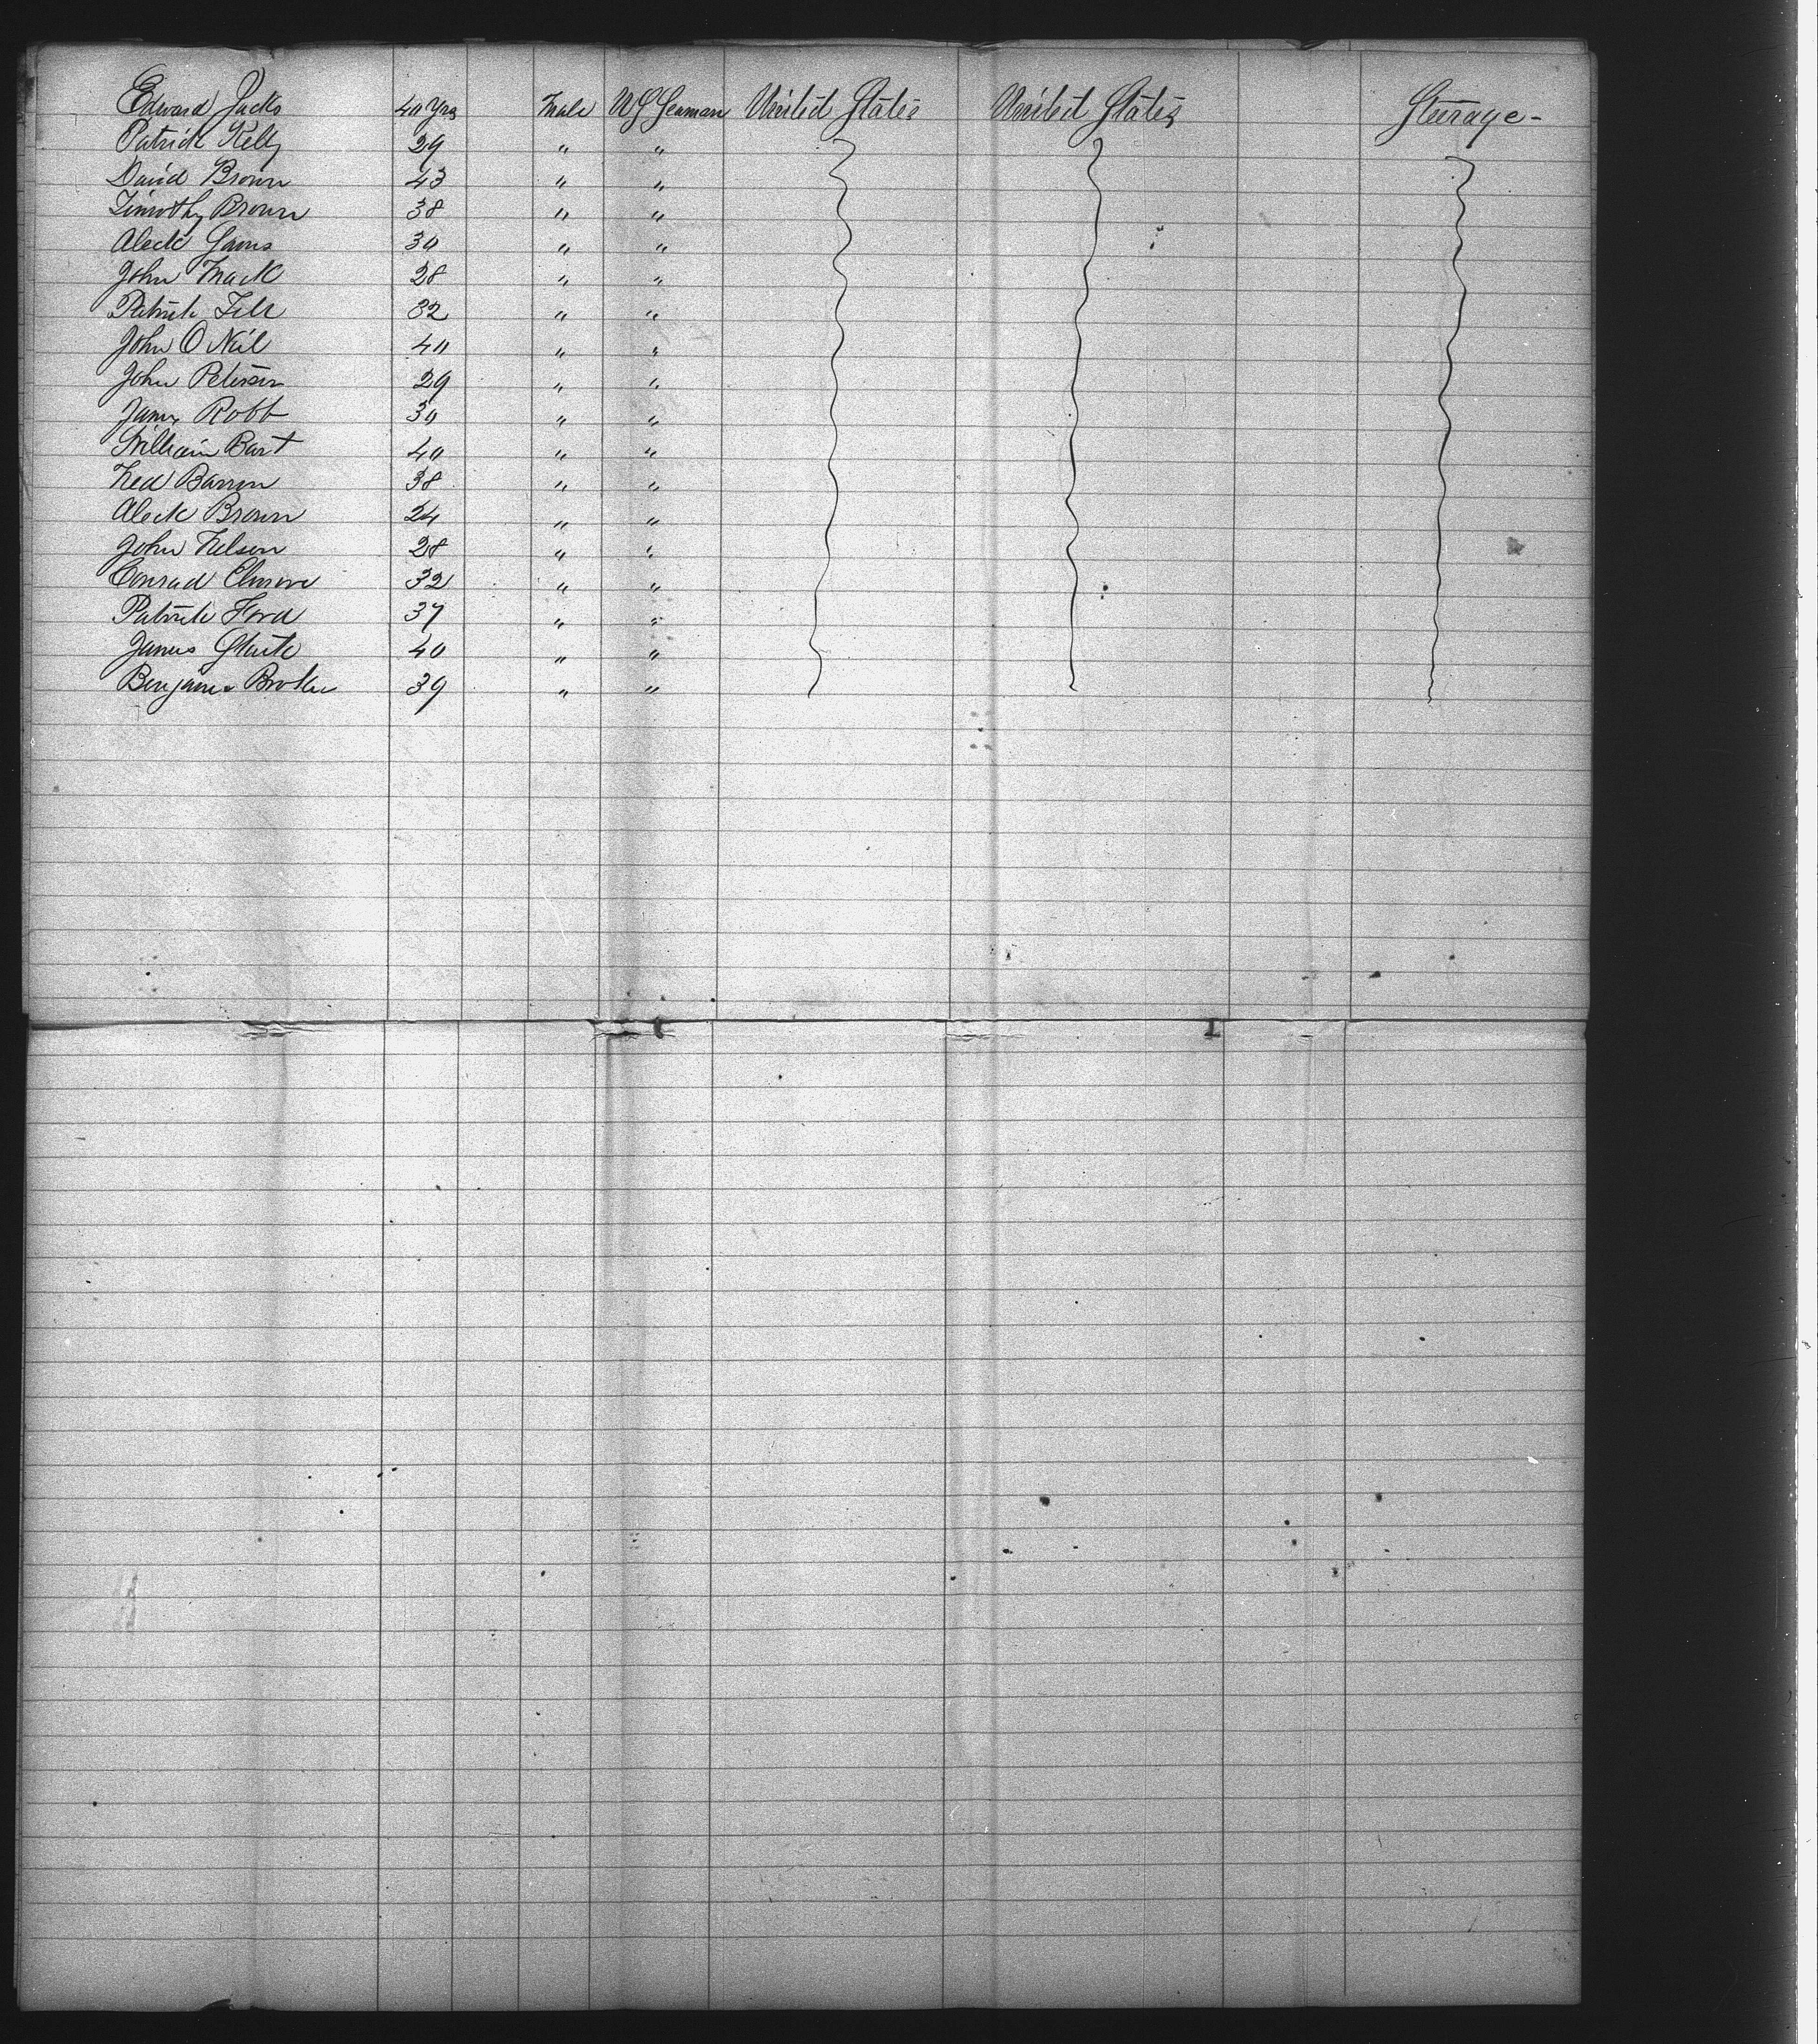 Edward Jacks 40 Yrs Male US Seaman United States United States Steerage-
Patrick Kelly 29 " "
David Brown 43 " "
Timothy Brown 38 " "
Aleck 30 " "
John Mack 28 " "
Patrick 32 " "
John O Neil 40 " "
John Peterson 29 " "
James Robb 30 " "
William Bart 40 " "
Ned Barron 38 " "
Aleck Brown 24 " "
John Nelson 28 " "
Conrad 32 " "
Patrick Ford 37 " "
James 40 " "
39 " "